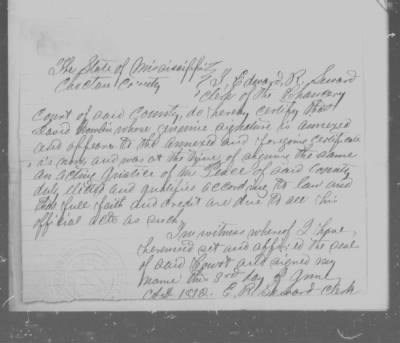 The State of Mississippi
Choctaw County
I, Edward R. Seward
Clerk of The Chancery
Court of said County, do hereby certify that
David whose genuine signature is annexed
and appears to the annexed and foregoing certificate
is now and was at the time of signing the same
an acting Justice of the Peace of said County
duly elected and qualified according to law and
that full faith and credit are due to all his
official acts as such.
In witness whereof I have
hereunto set and affixed the seal
of said Court and signed my
name this 3rd day of June
E. R. Seward Clerk